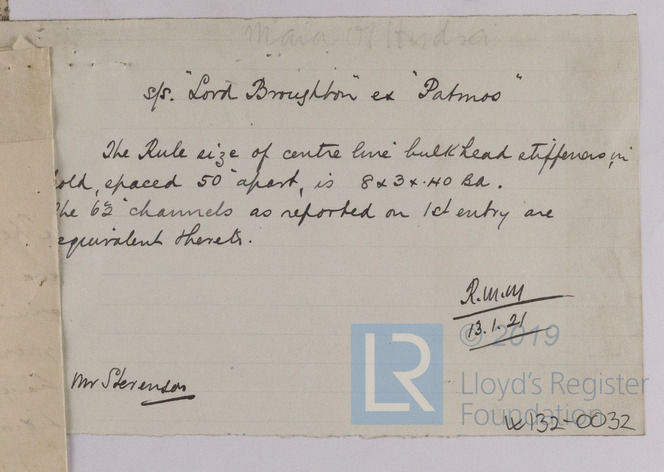 s/s. "Lord Broughton" ex "Patmos"
The Rule size of centre line bulkhead stiffeners, in
hold, spaced 50" apart, is 8 x 3 x .40 BA.
The 6½" channels as reported on 1st entry are
equivalent thereto.
R.M.M
13.1.21
© 2019
Mr Stevenson
LR
Lloyd's Register
Foundation
W132-0032